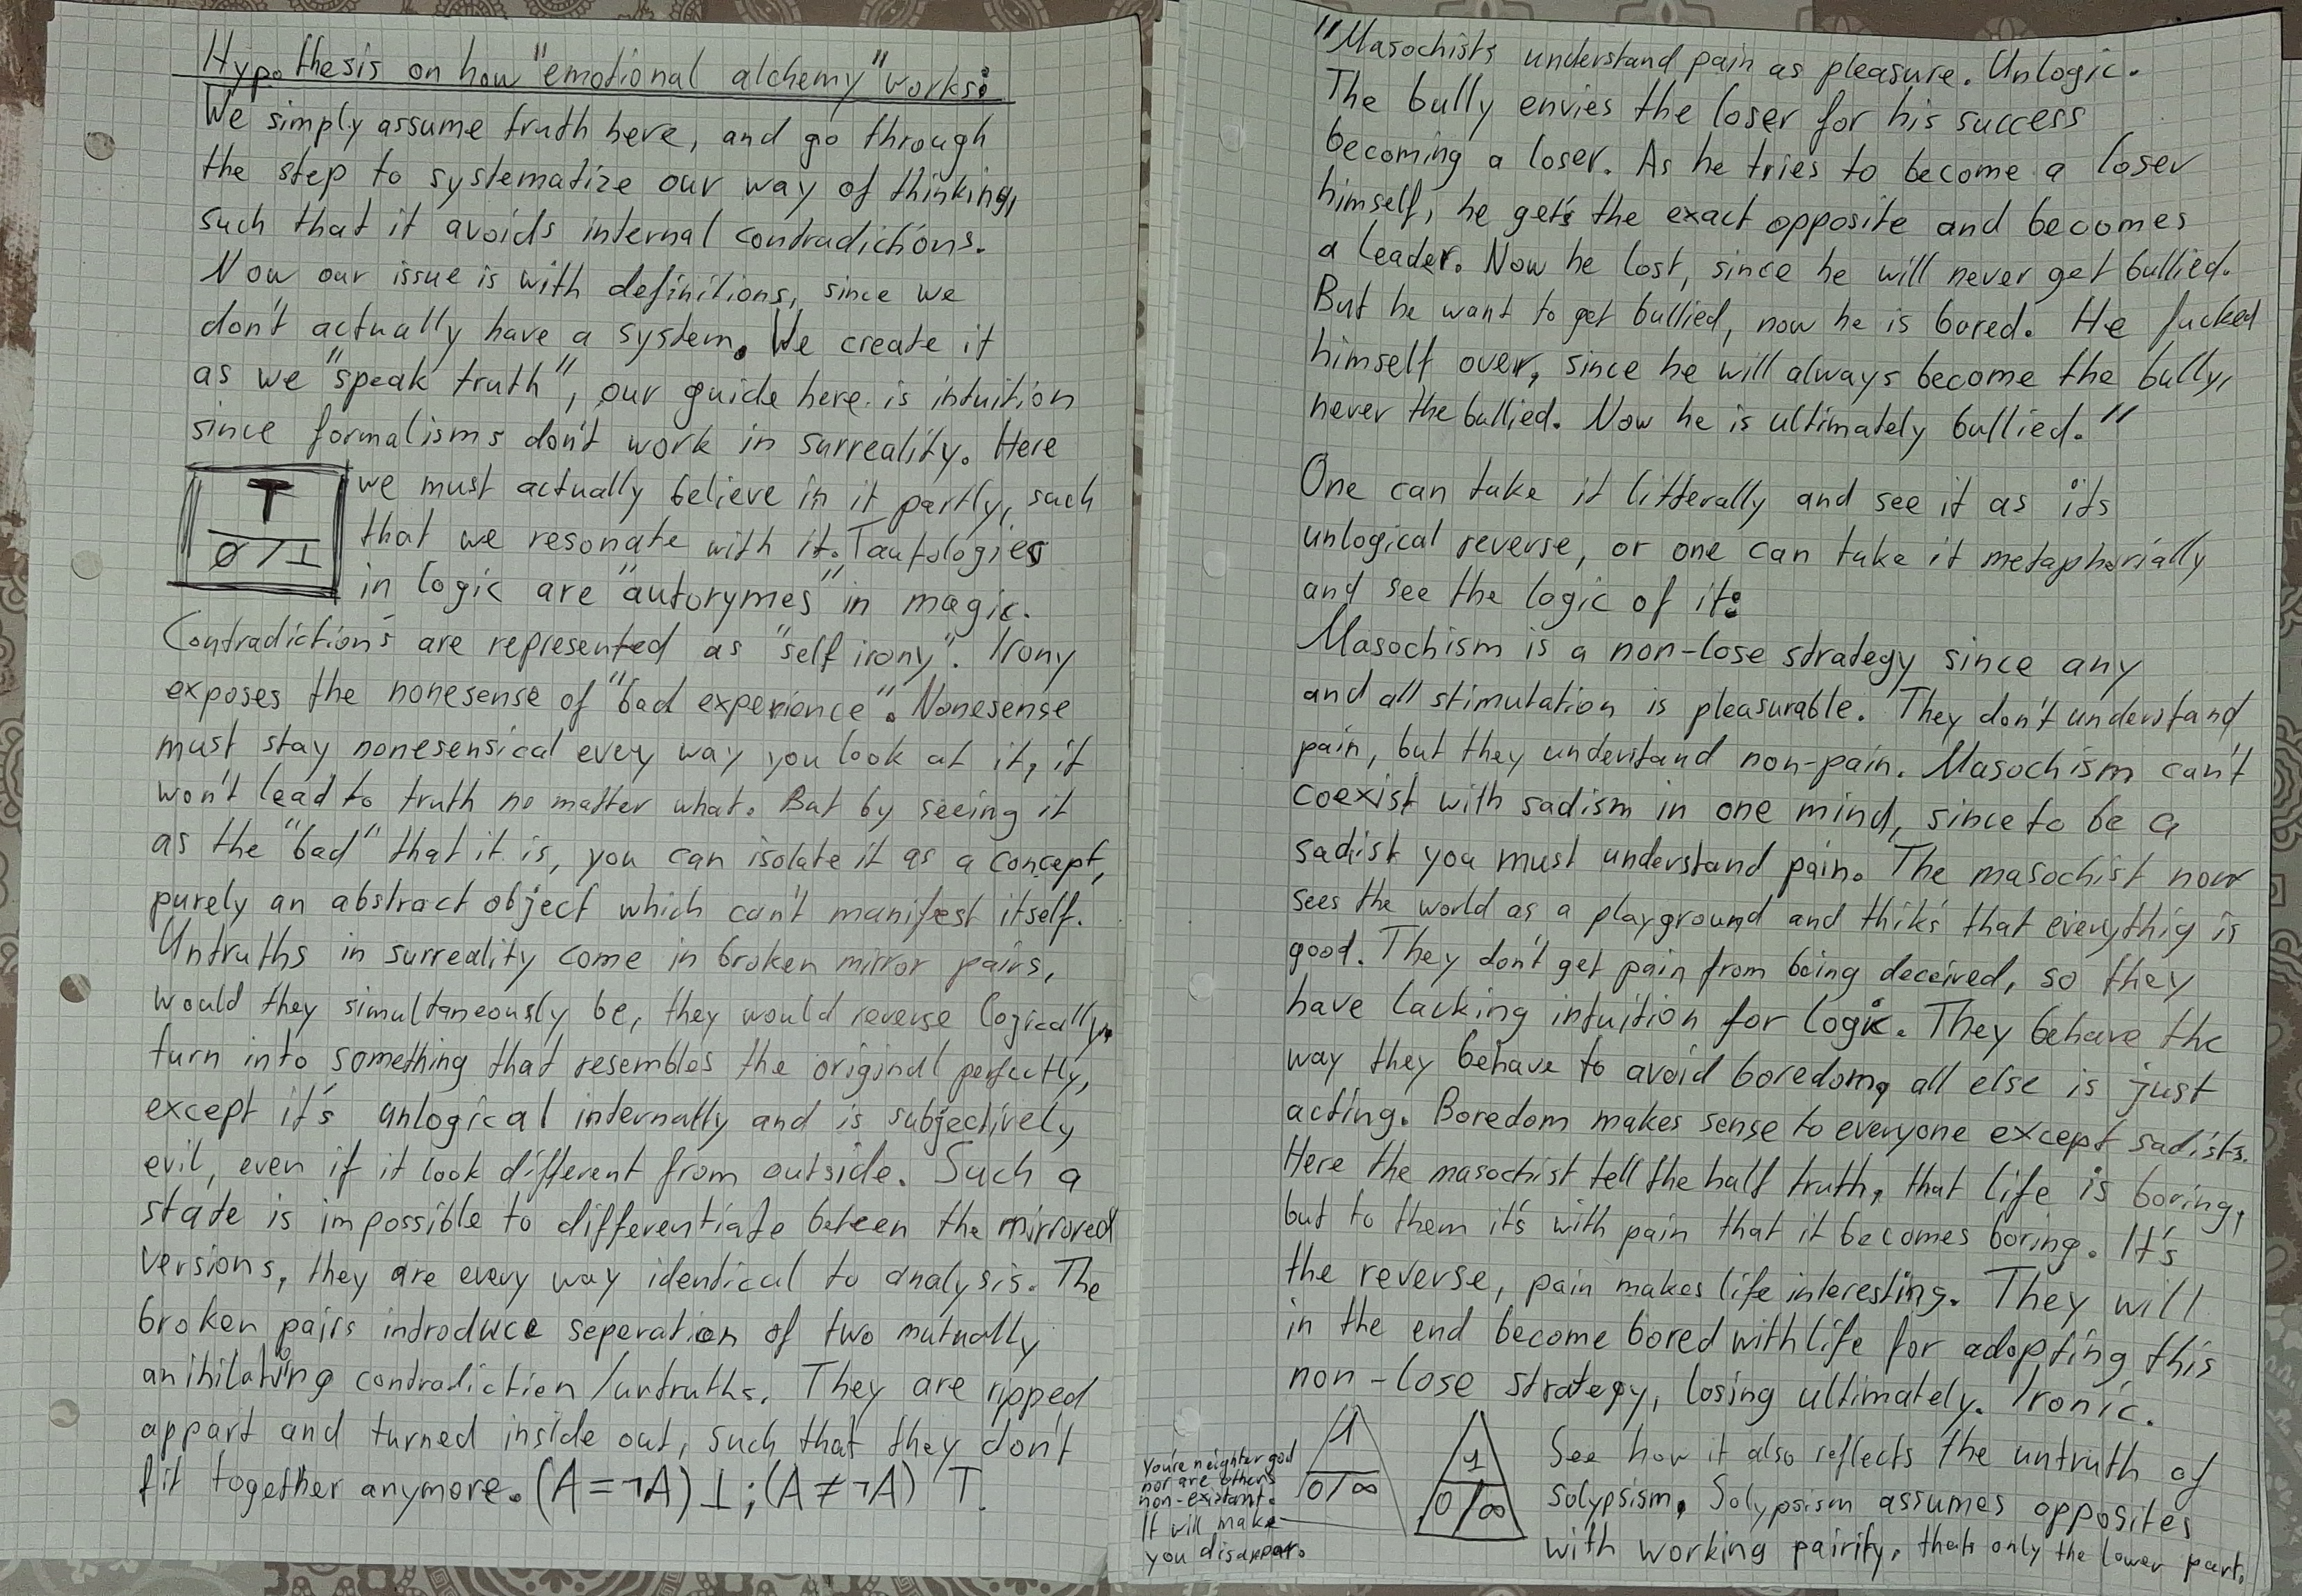 Hypothesis on how "emotional alchemy" works:
We simply assume truth here, and go through
the step to systematize our way of thinking,
such that it avoids internal contradictions.
Now our issue is with definitions, since we
don't actually have a system. We create it
as we "speak truth", our guide here is intuition
since formalisms don't work in surreality. Here
we must actually believe in it partly, such
that we resonate with it. Tautologies
in logic are "autorymes" in magic.
T
Ø / ⊥
Contradictions are represented as "self irony". Irony
exposes the nonesense of "bad experience". Nonesense
must stay nonesensical every way you look at it, it
won't lead to truth no matter what. But by seeing it
as the "bad" that it is, you can isolate it as a concept,
purely an abstract object which can't manifest itself.
Untruths in surreality come in broken mirror pairs,
would they simultaneously be, they would reverse logically,
turn into something that resembles the original perfectly,
except it's unlogical internally and is subjectively
evil, even if it look different from outside. Such a
state is impossible to differentiate beteen the mirrored
versions, they are every way identical to analysis. The
broken pairs introduce seperation of two mutually
anihilating contradiction/untruths. They are ripped
appart and turned inside out, such that they don't
fit together anymore. (A=¬A) ⊥; (A≠¬A) T.
"Masochists understand pain as pleasure. Unlogic.
The bully envies the loser for his success
becoming a loser. As he tries to become a loser
himself, he gets the exact opposite and becomes
a leader. Now he lost, since he will never get bullied.
But he want to get bullied, now he is bored. He fucked
himself over, since he will always become the bully,
never the bullied. Now he is ultimately bullied."
One can take it litterally and see it as its
unlogical reverse, or one can take it metaphorially
and see the logic of it:
Masochism is a non-lose strategy since any
and all stimulation is pleasurable. They don't understand
pain, but they understand non-pain. Masochism can't
coexist with sadism in one mind, since to be a
sadist you must understand pain. The masochist now
sees the world as a playground and thiks that everythig is
good. They don't get pain from being deceived, so they
have lacking intuition for logic. They behave the
way they behave to avoid boredom, all else is just
acting. Boredom makes sense to everyone except sadists.
Here the masochist tell the half truth, that life is boring,
but to them it's with pain that it becomes boring. It's
the reverse, pain makes life interesting. They will
in the end become bored with life for adopting this
non-lose strategy, losing ultimately. Ironic.
You're neighter god
nor are others
non-existant.
It will make
you disappar.
1
0/∞
1
0/∞
See how it also reflects the untruth of
solypsism. Solypsism assumes opposites
with working pairity, thats only the lower part.